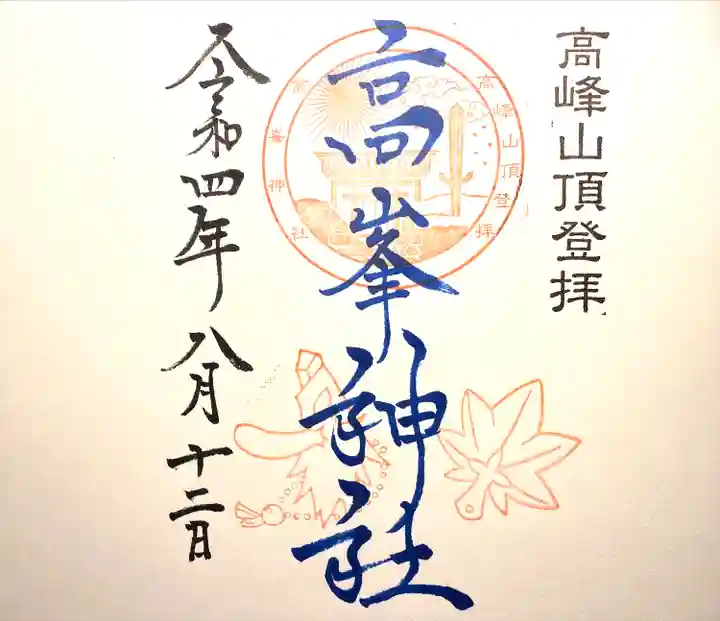 高峰山頂登拝
高峯神社
高峰山頂登拝
高峯神社
令和四年八月十二日